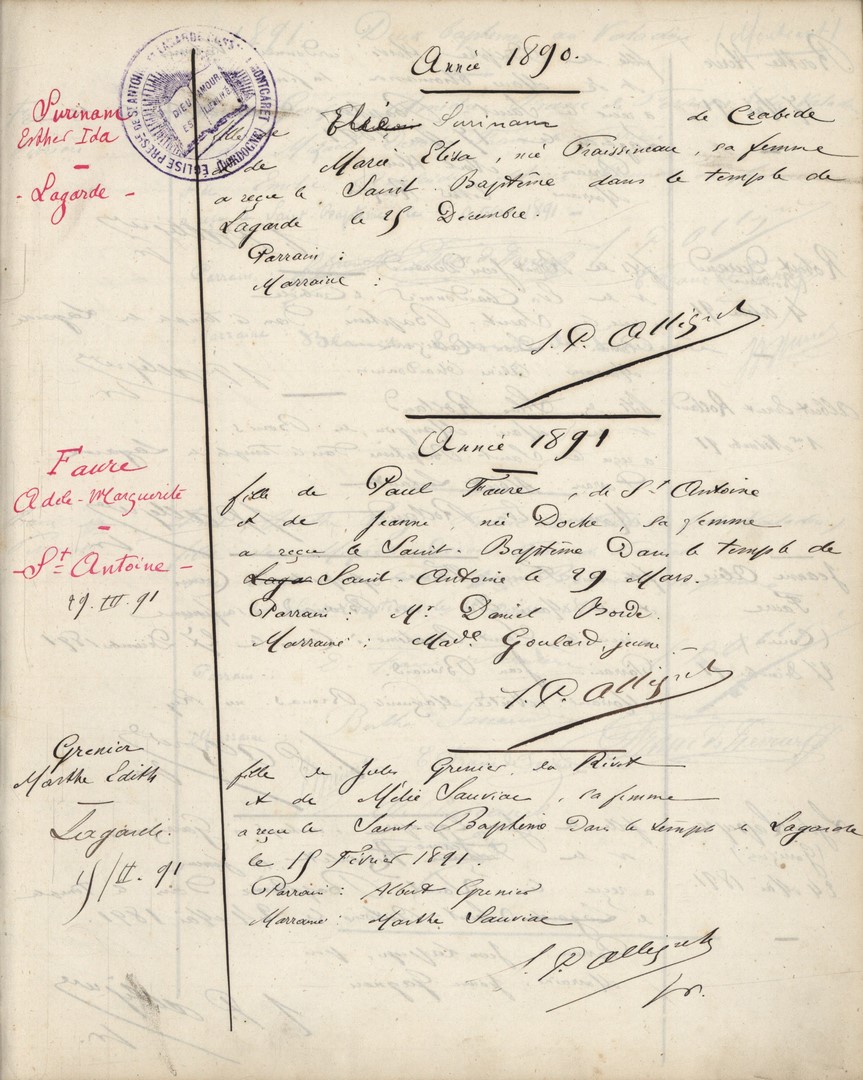 Année 1890.
Surinam
Esther Ida
-
- Lagarde -
fille de Elie Surinam de Crabide
et de Marie Elisa, née Fraissineau, sa femme
a reçu le Saint-Baptême dans le temple de
Lagarde le 25 Décembre.
Parrain :
Marraine :
S. P. Allégret
Année 1891
Faure
Adèle-Marguerite
-
- St Antoine -
29. III. 91
fille de Paul Faure, de St Antoine
et de Jeanne, née Doche, sa femme
a reçu le Saint-Baptême Dans le temple de
Laga Saint-Antoine le 29 Mars.
Parrain : Mr Daniel Borde.
Marraine : Madle Goulard jeune
S. P. Allégret
Grenier
Marthe Edith
-
Lagarde.
15/II. 91
fille de Jules Grenier, du Rivet
et de Mélie Sauviac, sa femme
a reçu le Saint-Baptême Dans le temple de Lagarde
le 15 Février 1891.
Parrain : Albert Grenier
Marraine : Marthe Sauviac
S. P. Allégret
DIEU AMOUR
EGLISE PRESB. DE ST ANTOINE LAGARDE MONTCARET
(DORDOGNE)